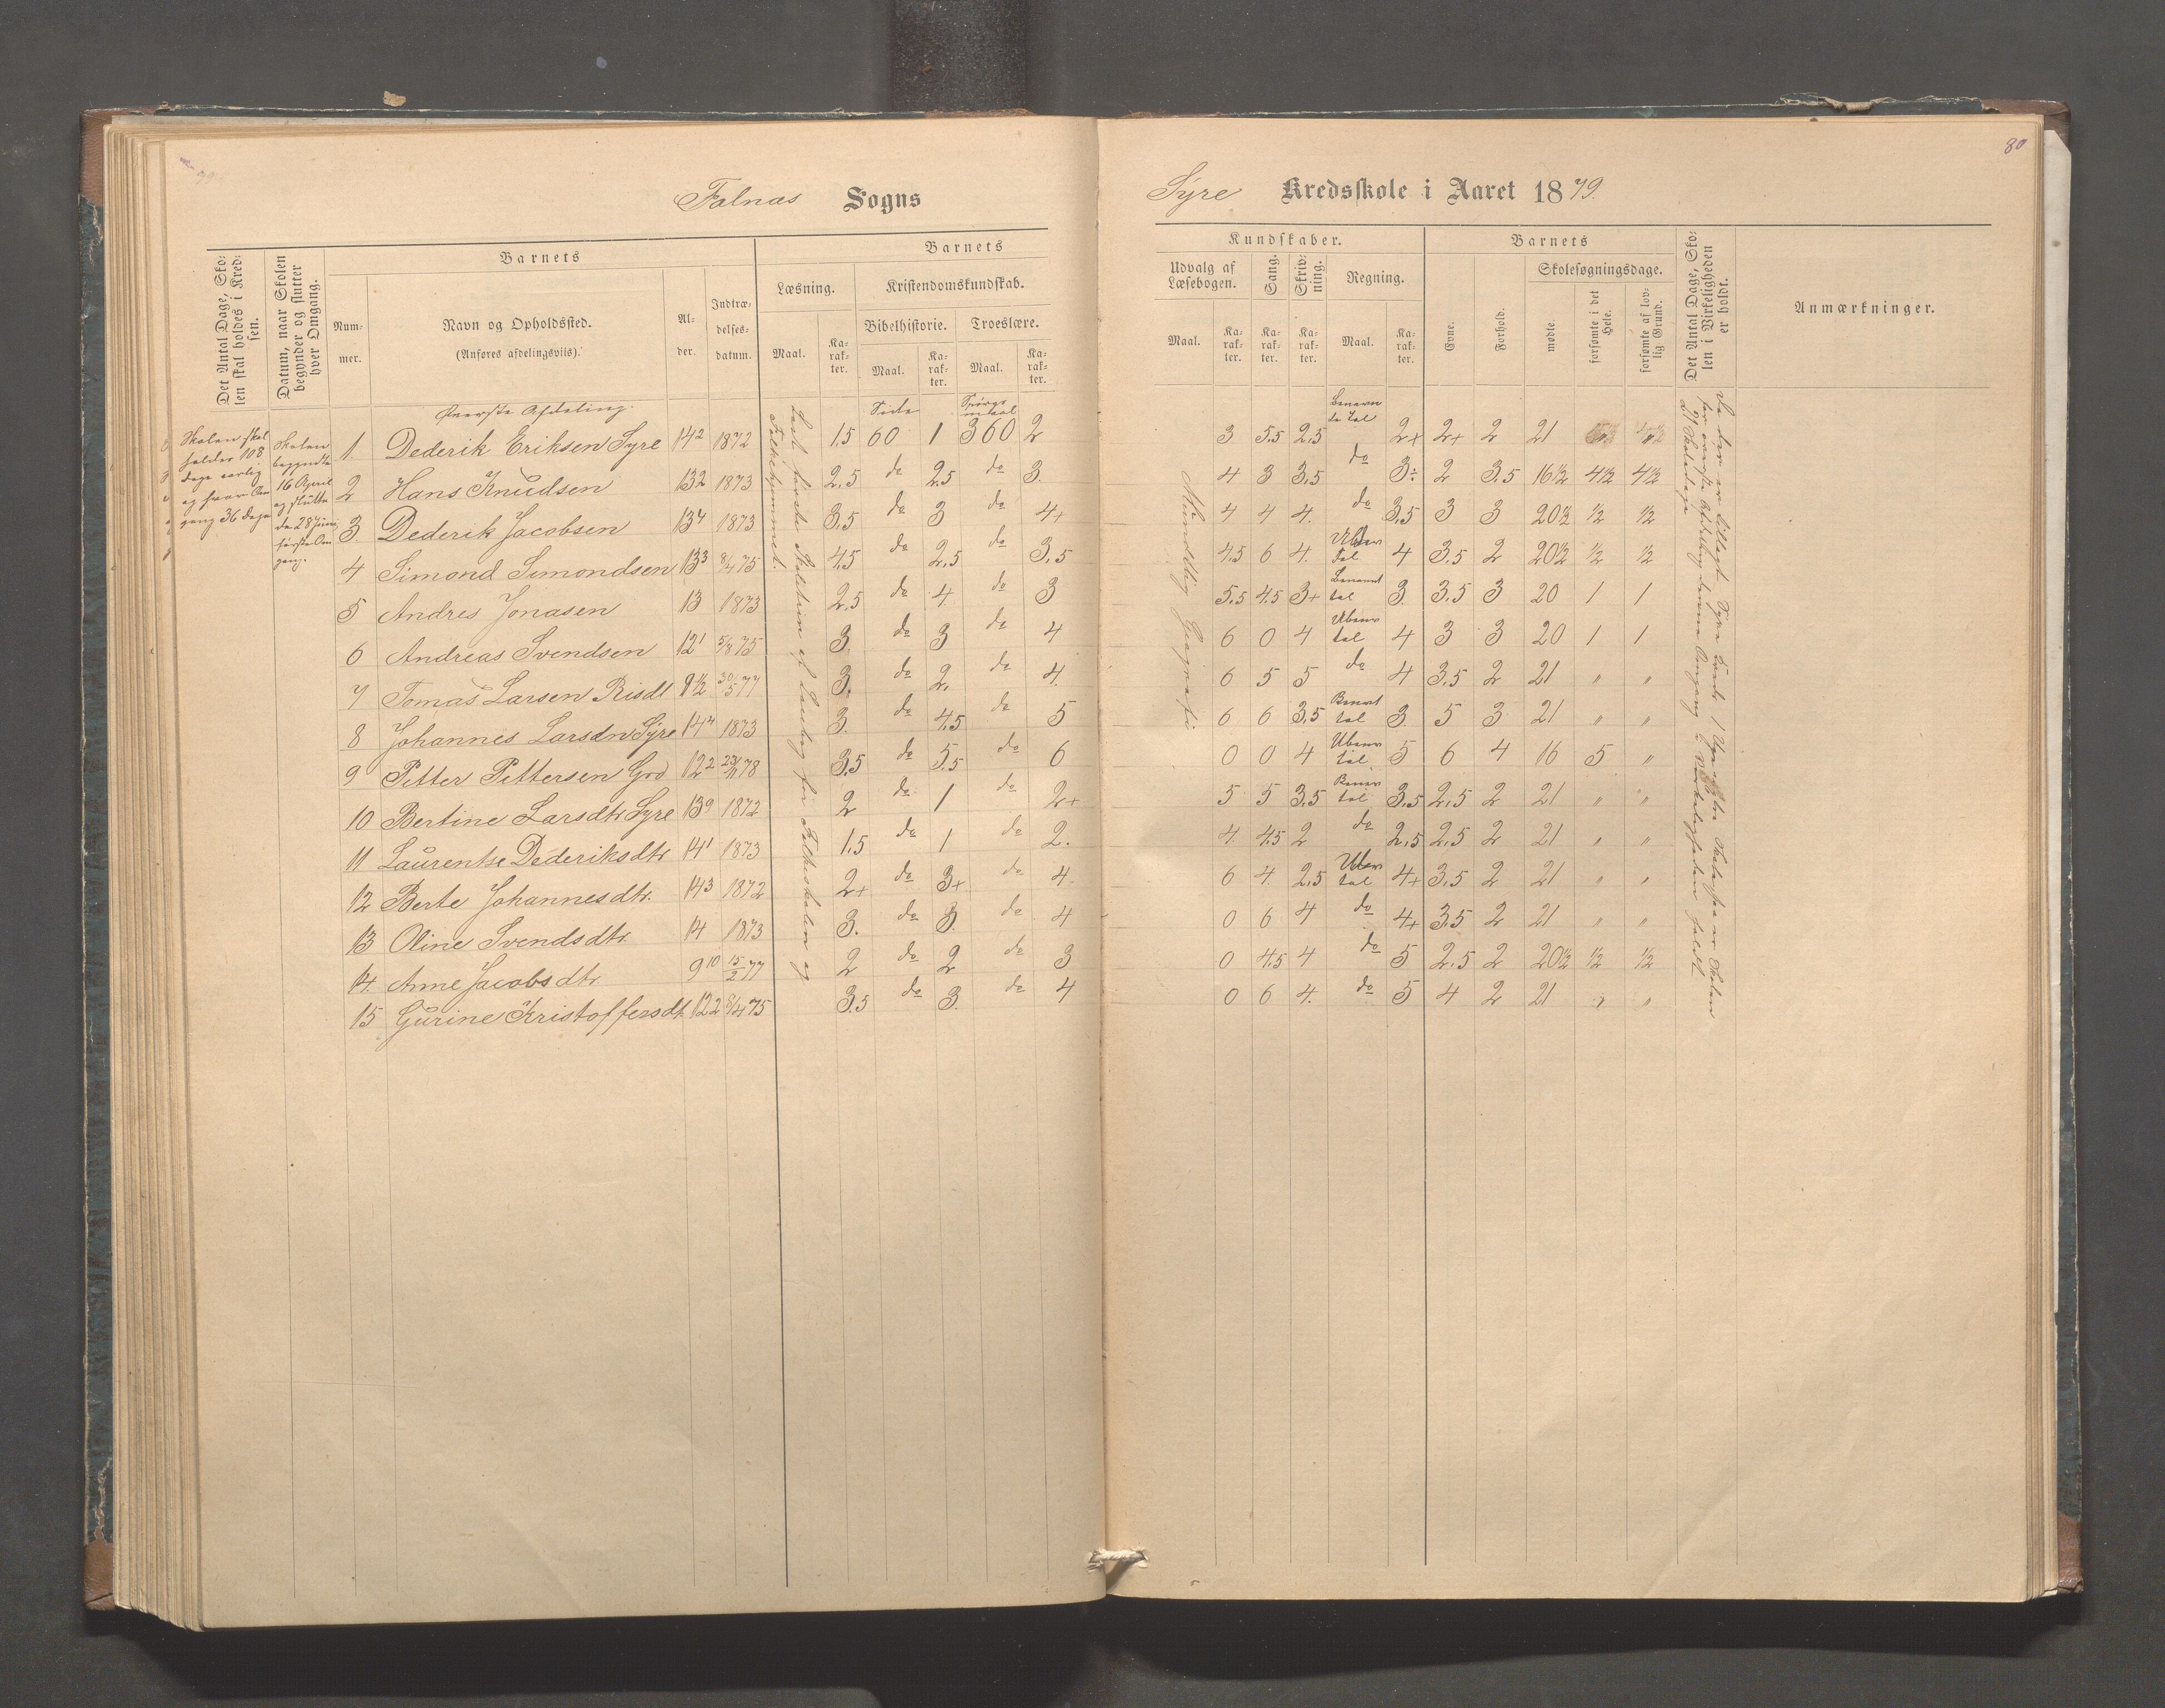 80
Falnæs Sogns
Syre Kredsskole i Aaret 1879.
Det Antal Dage, Sko-
len skal holdes i Kred-
sen.
Datum, naar Skolen
begynder og slutter
hver Omgang.
Barnets
Num-
mer.
Navn og Opholdssted.
(Anføres afdelingsviis).
Al-
der.
Indtræ-
delses-
datum.
Barnets
Læsning.
Maal.
Ka-
rak-
ter.
Kristendomskundskab.
Bibelhistorie.
Maal.
Ka-
rak-
ter.
Troeslære.
Maal.
Ka-
rak-
ter.
Kundskaber.
Udvalg af
Læsebogen.
Maal.
Ka-
rak-
ter.
Sang.
Ka-
rak-
ter.
Skriv-
ning.
Ka-
rak-
ter.
Regning.
Maal.
Ka-
rak-
ter.
Barnets
Evne.
Forhold.
Skolesøgningsdage.
mødte.
forsømte i det
Hele.
forsømte af lov-
lig Grund.
Det Antal Dage, Sko-
len i Virkeligheden
er holdt.
Anmærkninger.
Skolen skal
holdes 108
dage aarlig
og hver Om
gang 36 dage
Skolen
begyndte
16 April
og sluttede
den 28 Juni
første Om
gang.
Øverste Afdeling.
Side
Spørgs
maal
1. Dederik Eriksen Syre 14² 1872 1,5 60 1 360 2 3 5,5 2,5 Benævn
de tal 2+ 2+ 2 21
2 Hans Knudsen 13² 1873 2,5 do 2,5 do 3. 4 3 3,5 do 3÷ 2 3,5 16½ 4½ 4½
3 Dederik Jacobsen 13⁴ 1873 3,5 do 3 do 4+ 4 4 4. do 3,5 3 3 20½ ½ ½
4 Simond Simondsen 13³ 8/4 75 4,5 do 2,5 do 3,5 4,5 6 4. Ubenv
tal 4 3,5 2 20½ ½ ½
5 Andres Jonasen 13 1873 2,5 do 4 do 3 5,5 4,5 3+ Benævnt
tal 3. 3,5 3 20 1 1
6 Andreas Svendsen 12¹ 5/8 75 3. do 3 do 4 6 0 4 Ubenv
tal 4 3 3 20 1 1
7 Tomas Larsen Risdl 9½ 30/5 77 3. do 2. do 4. 6 5 5 do 4 3,5 2 21 " "
8 Johannes Larsen Syre 14⁴ 1873 3. do 4,5 do 5 6 6 3,5 Benævt
tal 3. 5 3 21 " "
9 Petter Pettersen Grd 12² 23/11 78 3,5 do 5,5 do 6 0 0 4 Ubenv
tal 5 6 4 16 5 "
10 Bertine Larsdtr Syre 13⁹ 1872 2 do 1 do 2+ 5 5 3,5 Benæv
tal 3,5 2,5 2 21 " "
11 Laurentse Dederiksdtr 14¹ 1873 1,5 do 1 do 2. 4. 4,5 2 do 2,5 2,5 2 21 " "
12 Berte Johannesdtr. 14³ 1872 2+ do 3+ do 4. 6 4 2,5 Ubenv
tal 4+ 3,5 2 21 " "
13 Oline Svendsdtr 14 1873 3. do 3. do 4 0 6 4 do 4+ 3,5 2 21 " "
14. Anne Jacobsdtr 9¹⁰ 15/2 77 2 do 2 do 3 0 4,5 4 do 5 2,5 2 20½ ½ ½
15 Gurine Kristoffersdt. 12² 8/4 75 3,5 do 3. do 4 0 6 4. do 5 4 2 21 " "
Læst første Skoletrin af Læsebog for Folkeskolen og
Folkehjemmet.
Mundtlig Geografi